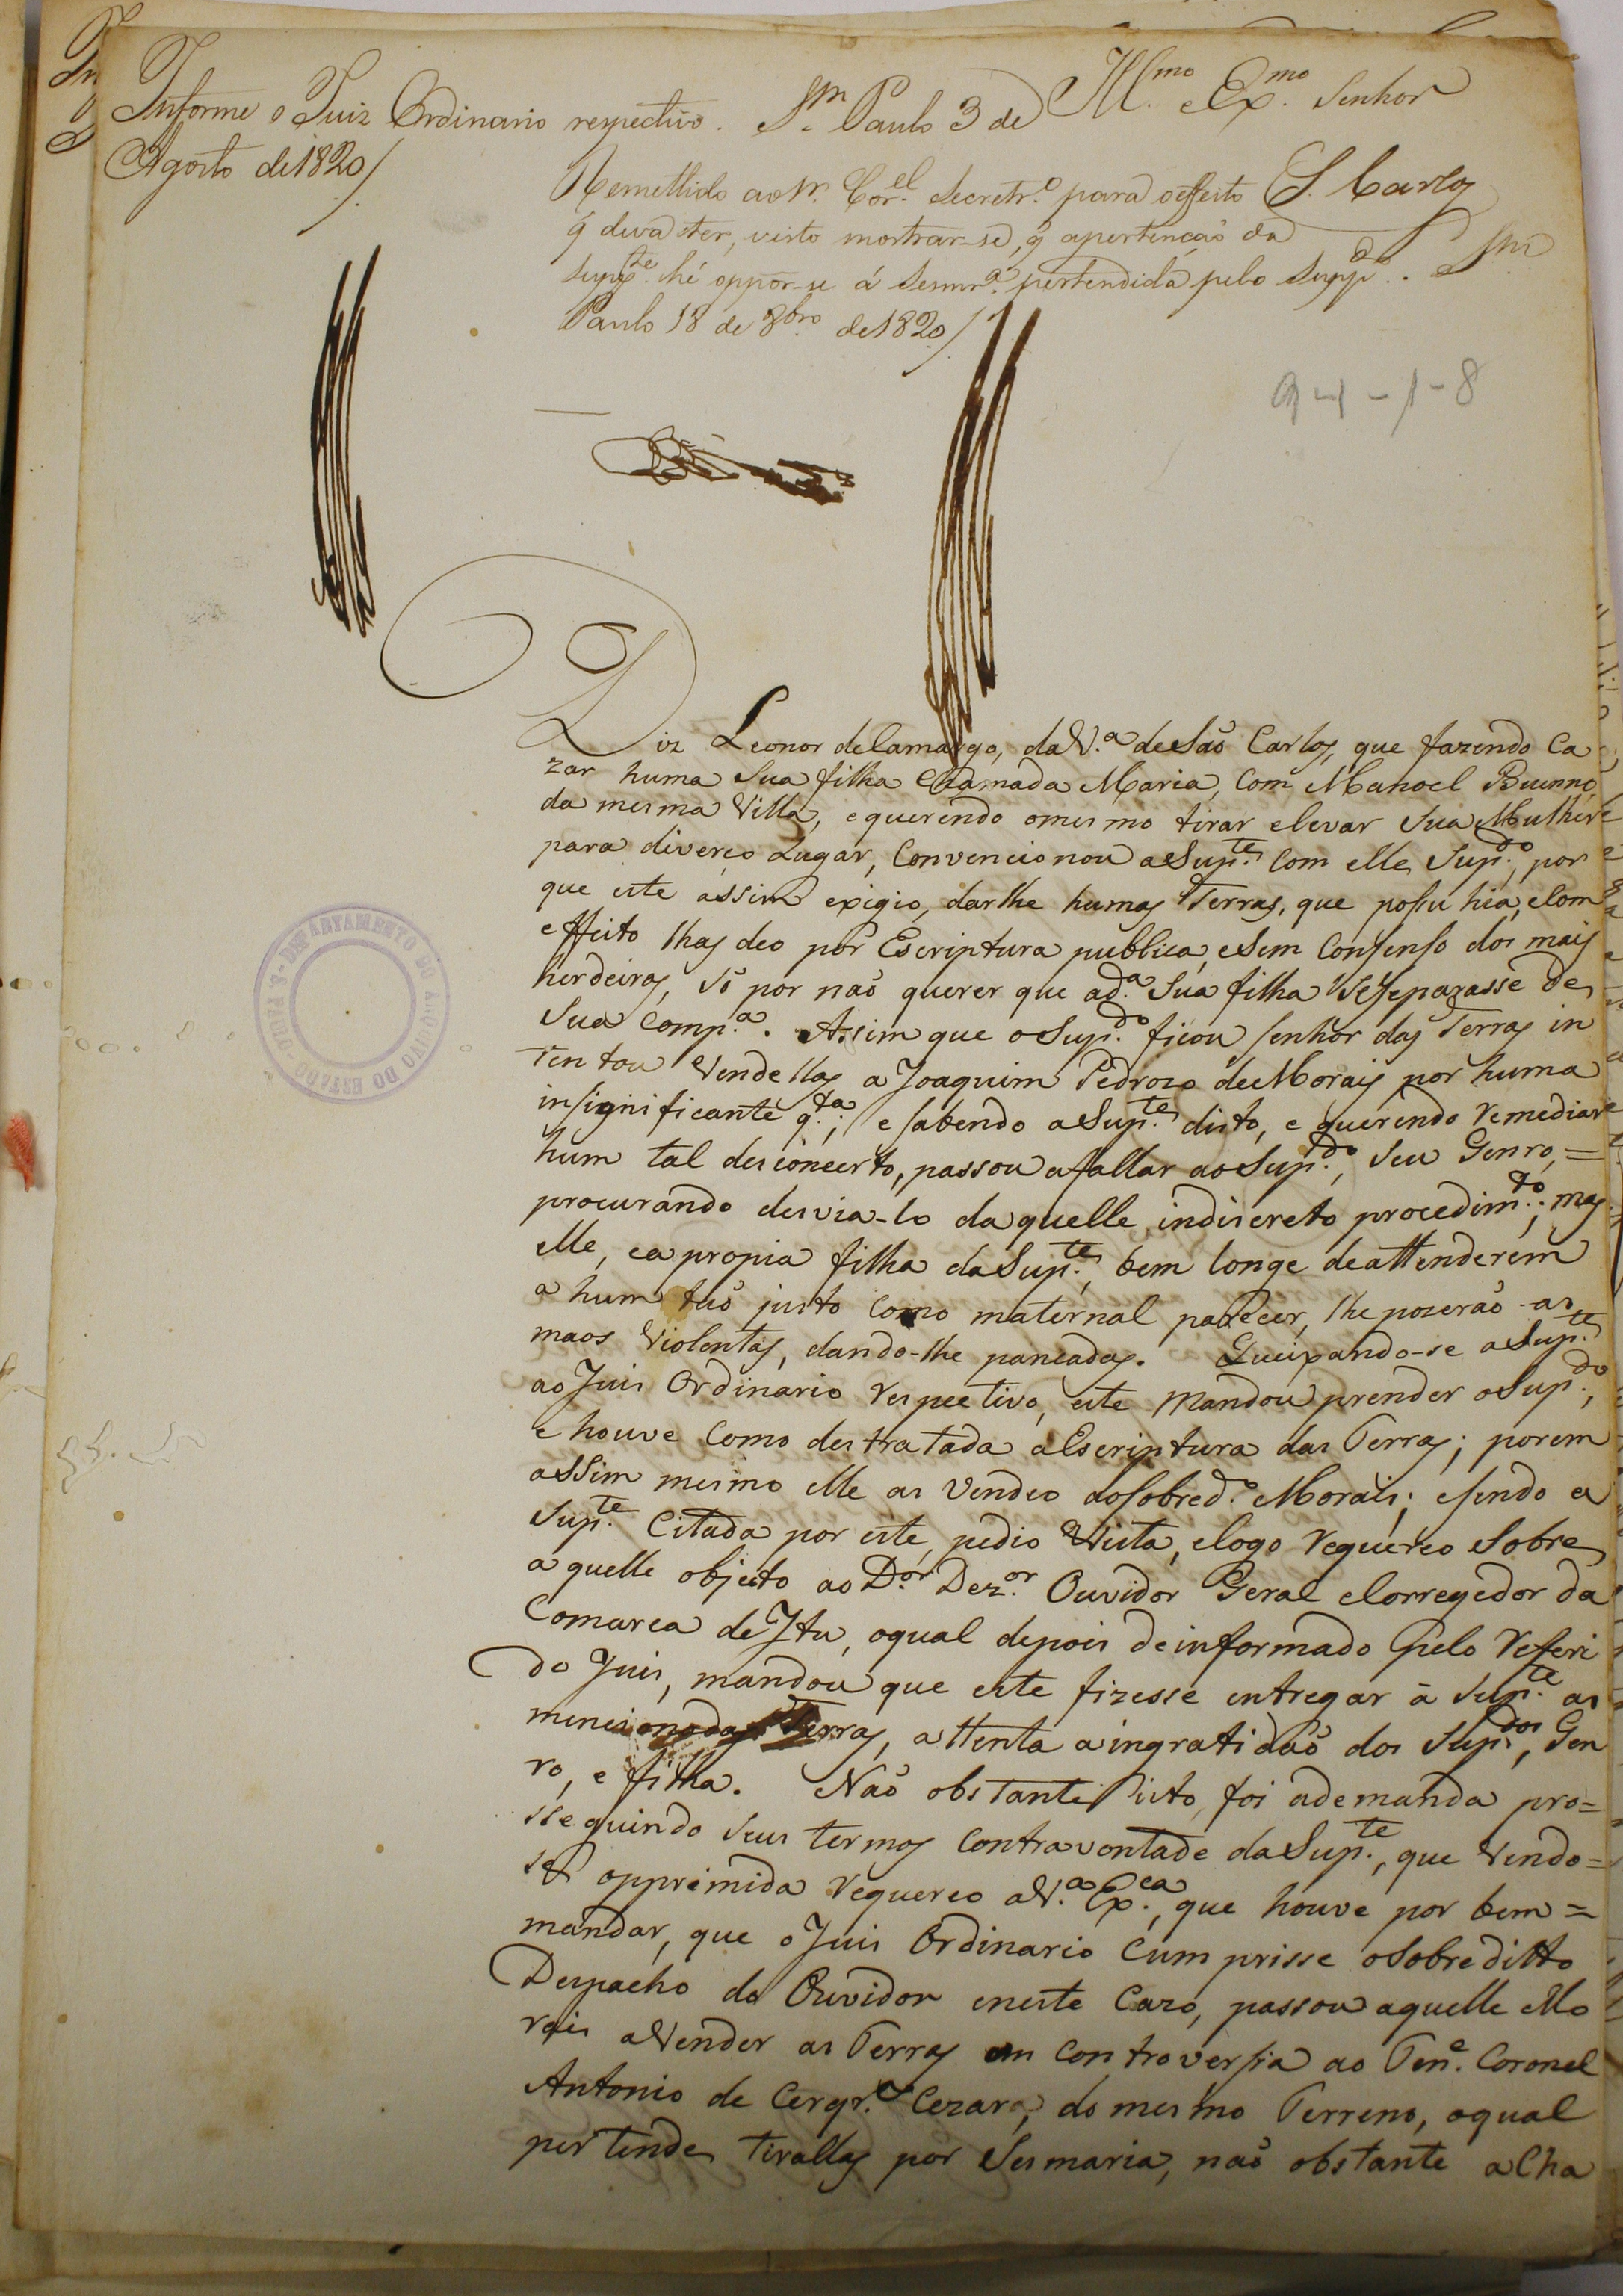 Ill.mo e Ex.mo Senhor
Informe o Juiz Ordinario respectivo. Sm Paulo 3 de
Agosto de 1820/
S. Carlos
Remettido ao Sr. Cor.el Secretr.o para o effeito
q deva ter, visto mostrar-se, q apertenção da
supp.te hé oppor-se á Sesmr.a pertendida pelo Supp.do. Sm
Paulo 18 de 8bro de 1820/
94-1-8
Diz Leonor de Camargo, da V.a de São Carlos, que fazendo Ca
zar huma Sua filha Chamada Maria, Com Manoel Buenno,
da mesma Villa, e querendo omesmo tirar elevar Sua Mulher
para diverço Lugar, Convencionou a Sup.te Com elle Sup.do, por
que este assim exigio, darlhe humas Terras, que possu hia, eCom
effeito lhas deo por Escriptura publica, eSem Consenso dos mais
herdeiros, só por não querer que ad.a Sua filha Seseparasse de
Sua Comp.a. Assim que oSup.do ficou senhor das Terras in
tentou Vendellas a Joaquim Pedrozo de Morais por huma
insignificante q.ta; e sabendo aSup.te disto, e querendo remediar
hum tal desconcerto, passou afallar ao Sup.do, Seu Genro, =
procurando desvia-lo daquelle indiscreto procedim.to; mas
elle, ea propia filha da Sup.te, bem longe deattenderem
a hum tão justo Como maternal parecer, lhe pozerão as
maos Violentas, dando-lhe pancadas. Queixando-se aSup.te
ao Juis Ordinario respectivo, este mandou prender oSup.do,
e houve Como destratada aEscriptura das Terras; porem
assim mesmo elle as Vendeo aosobred.o Morais; esendo a
Sup.te Citada por este, pedio Vista, elogo requereo Sobre
aquelle objecto ao D.or Dez.or Ouvidor Geral eCorregedor da
Comarca de Itu, oqual depois deinformado pelo referi
do Juis, mandou que este fizesse entregar á Sup.te as
mencionadas Terras, attenta aingratidão dos Sup.dos, Gen
ro, e filha. Não obstante isto, foi ademanda pro=
sseguindo seus termos Contravontade da Sup.te, que Vendo=
se opprimida requereo aV.a Ex.cia, que houve por bem =
mandar, que oJuis Ordinario Cumprisse oSobreditto
Despacho do Ouvidor eneste Cazo, passou aquelle Mo
rais aVender as Terras em Controversia ao Ten.e Coronel
Antonio de Cerqr.a Cezar, do mesmo Terreno, oqual
pertende tirallas por Sesmaria, não obstante acha
DEPARTAMENTO DO ARQUIVO DO ESTADO - S. PAULO